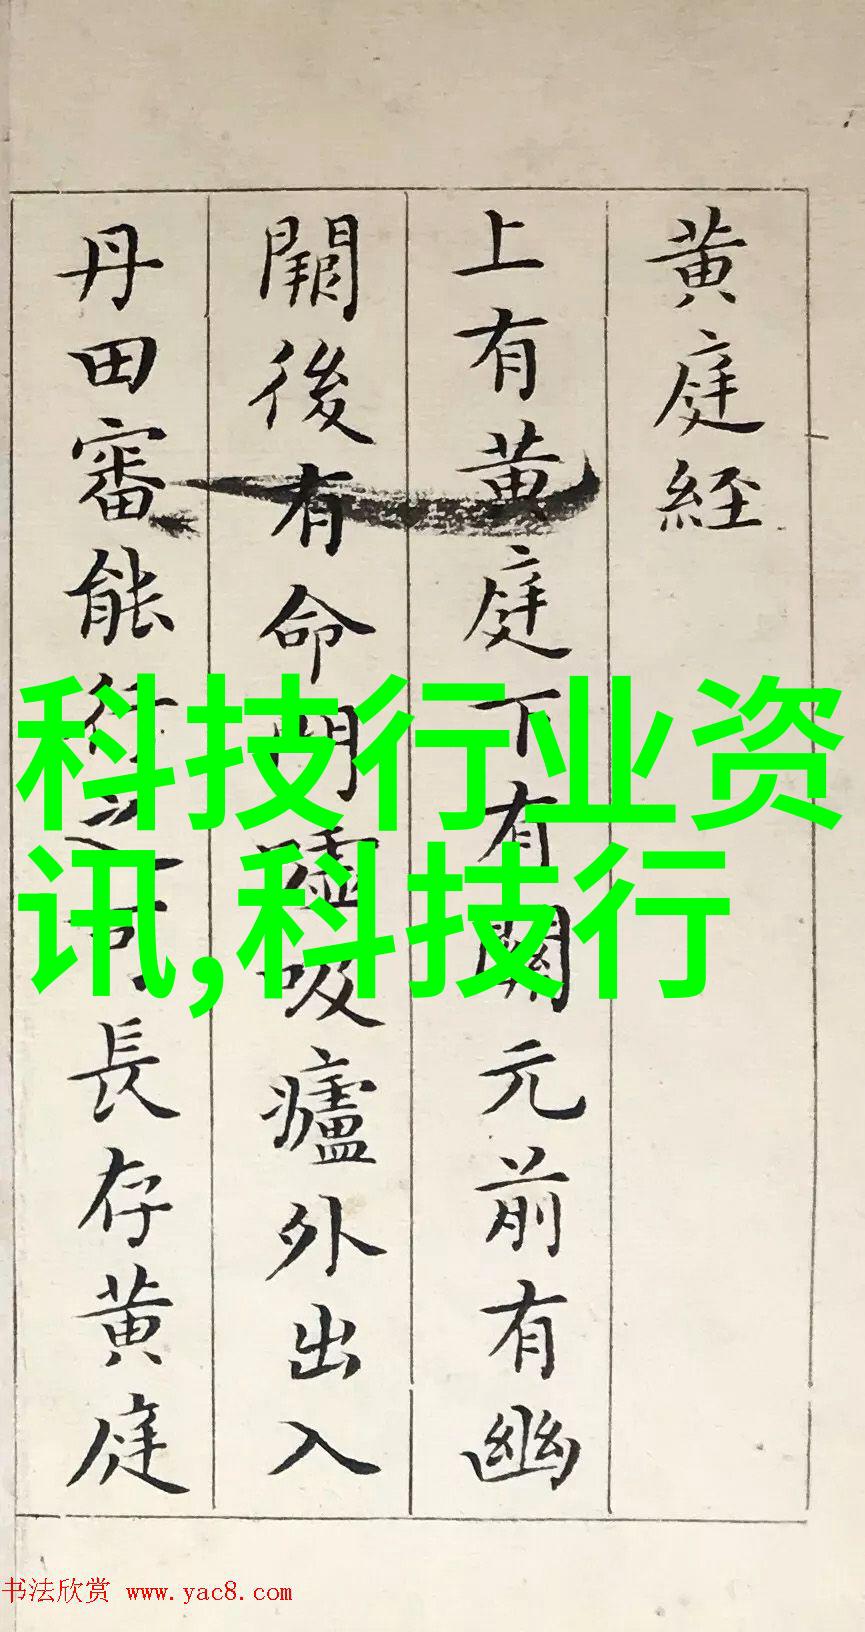 黄庭経
上有黄庭下有關元前有幽
闕後有命門嘘吸廬外出入
丹田審能行之可長存黄庭
科技行业资
讯,科技行
书法欣赏 www.yac8.com